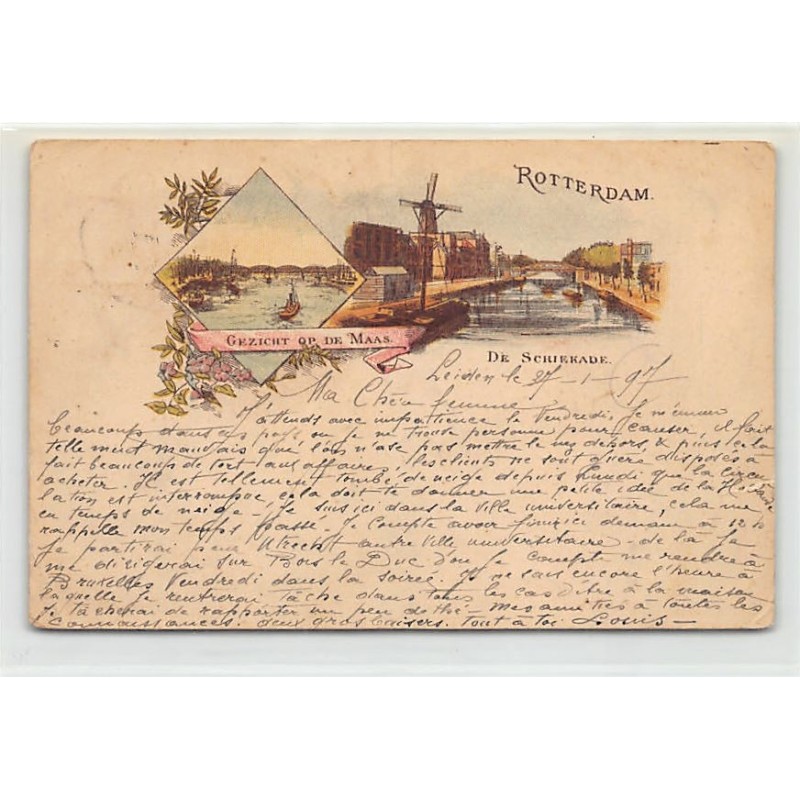 ROTTERDAM.
GEZICHT OP DE MAAS.
DE SCHIEKADE.
Leiden le 27-1-97
Ma Chère femme
J'attends avec impatience le Vendredi, je m'ennuie
beaucoup dans ce pays, où je ne trouve personne pour causer, il fait
tellement mauvais que l'on n'ose pas mettre le nez dehors, & puis cela
fait beaucoup de tort aux affaires, les clients ne sont guère disposés à
acheter. Il est tellement tombé de neige depuis Lundi que la circu
lation est interrompue, cela doit te donner une petite idée de la Hollande
en temps de neige - Je suis ici dans la ville universitaire, cela me
rappelle mon temps passé. Je compte avoir fini ici demain à 12 h
je partirai pour Utrecht autre ville universitaire - de là je
me dirigerai sur Bois le Duc d'où je compte me rendre à
Bruxelles Vendredi dans la soirée. Je ne sais encore l'heure à
laquelle je rentrerai tâche dans tous les cas d'être à la maison
Je tâcherai de rapporter un peu de thé - mes amitiés à toutes les
connaissances. deux gros baisers. Tout à toi Louis -